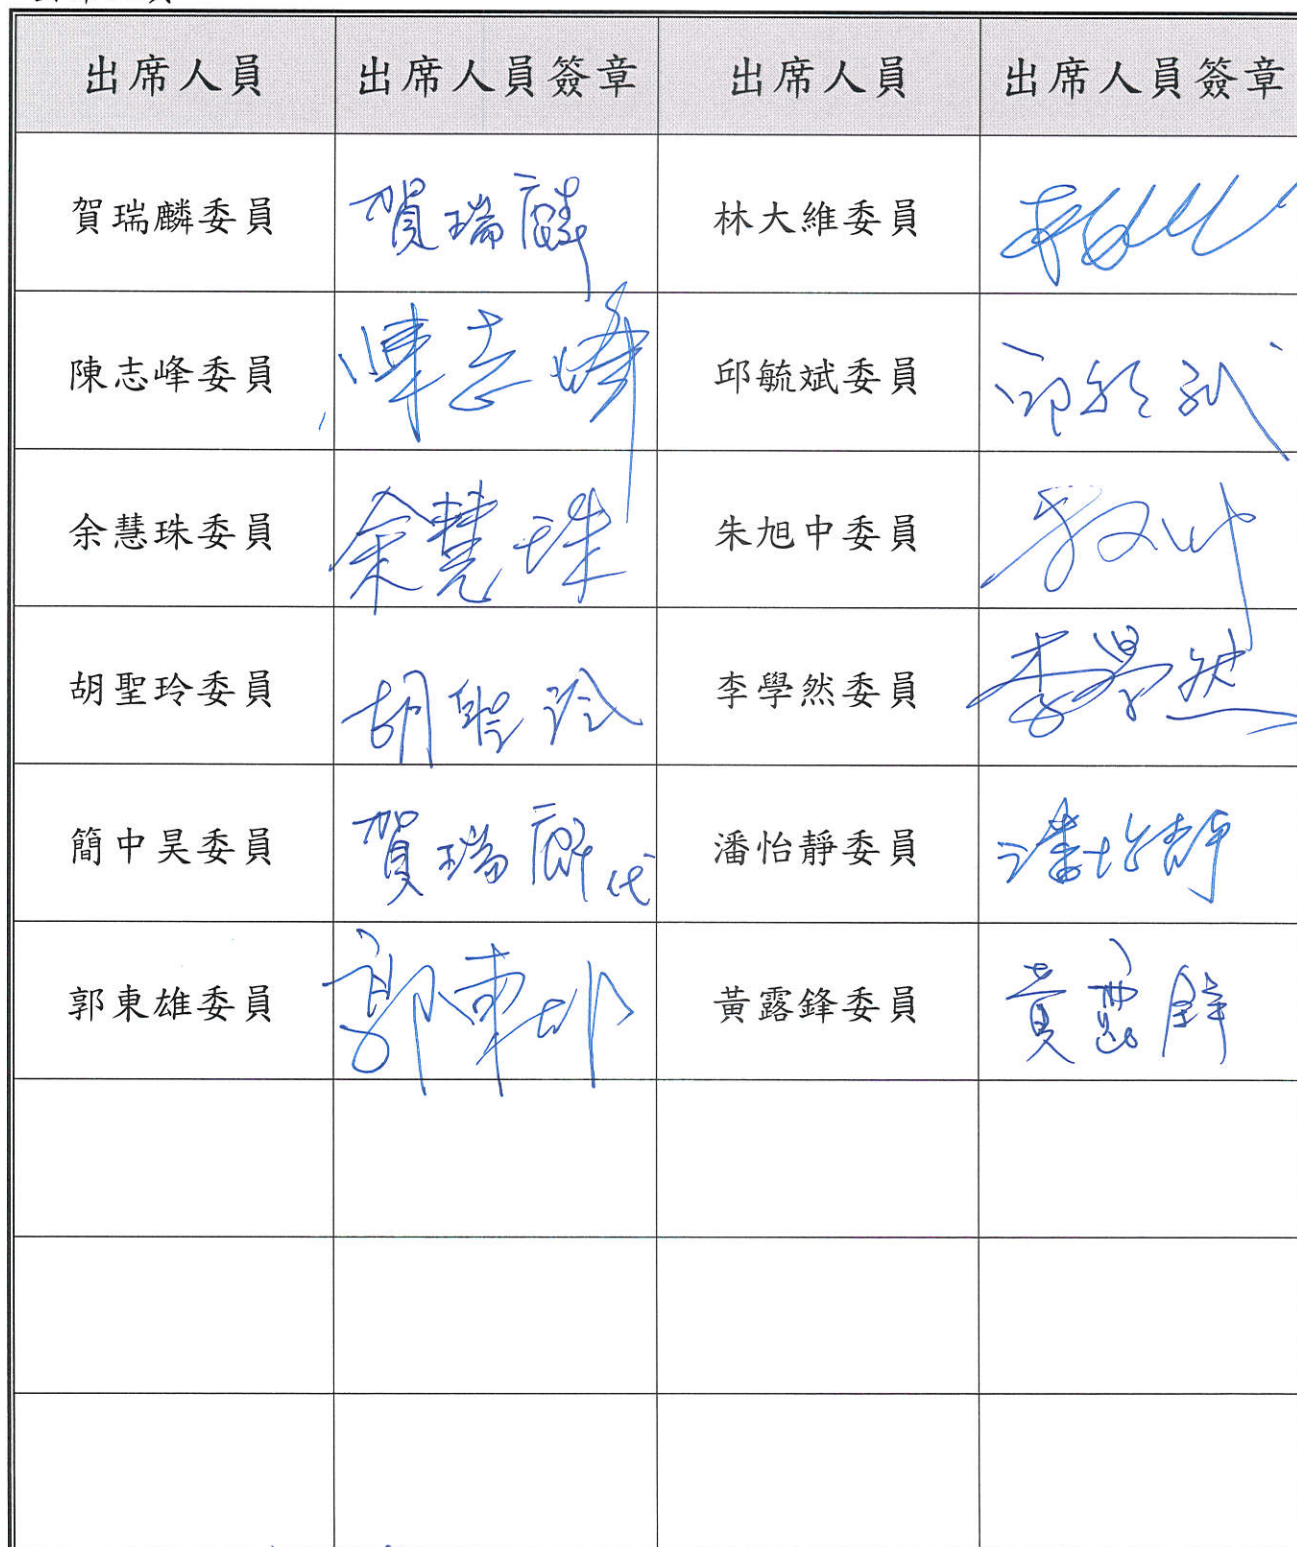 出席人員 出席人員簽章 出席人員 出席人員簽章
賀瑞麟委員 賀瑞麟 林大維委員
陳志峰委員 陳志峰 邱毓斌委員 邱毓斌
余慧珠委員 余慧珠 朱旭中委員
胡聖玲委員 胡聖玲 李學然委員 李學然
簡中昊委員 賀瑞麟代 潘怡靜委員 潘怡靜
郭東雄委員 郭東雄 黃露鋒委員 黃露鋒